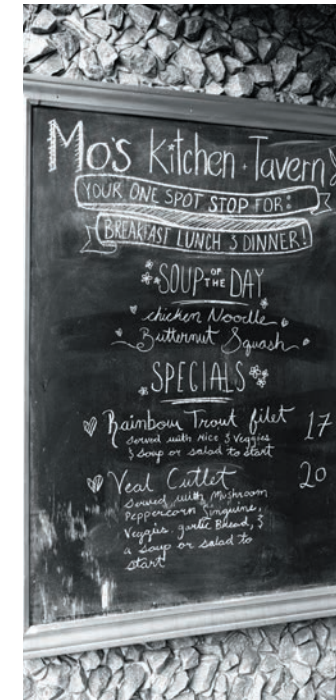 Mo's Kitchen · Tavern
YOUR ONE SPOT STOP FOR:
BREAKFAST LUNCH & DINNER!
SOUP OF THE DAY
chicken Noodle
Butternut Squash
SPECIALS
Rainbow Trout filet 17
served with rice & Veggies
& soup or salad to start
Veal Cutlet 20
served with Mushroom
Peppercorn Linguine,
Veggies, garlic Bread, &
a soup or salad to
start